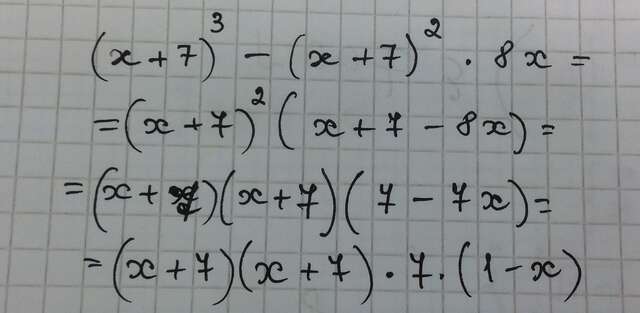 (x + 7)³ - (x + 7)² · 8x =
= (x + 7)² (x + 7 - 8x) =
= (x + 7)(x + 7)(7 - 7x) =
= (x + 7)(x + 7) · 7 · (1 - x)